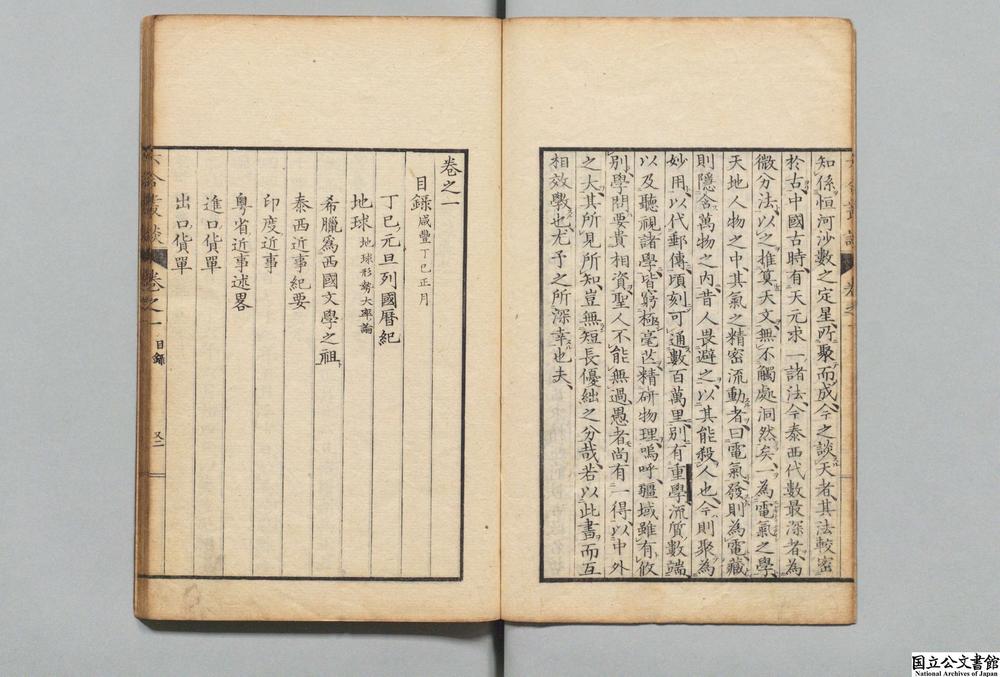 知係恒河沙數之定星所聚而成今之談天者其法較密
於古、中國古時有天元求一諸法今泰西代數最深者為
微分法以之推算天文無不觸處洞然矣一為電氣之學
天地人物之中其氣之精密流動者曰電氣發則為電藏
則隱含萬物之内昔人畏避之以其能殺人也今則聚為
妙用以代郵傳頃刻可通數百萬里別有重學流質數端
以及聽視諸學皆窮極毫芒精研物理嗚呼疆域雖有攸
別學問要貴相資聖人不能無過愚者尚有一得以中外
之大其所見所知豈無短長優絀之分哉若以此書而互
相效斅也尤予之所深幸也夫、
卷之一
目錄咸豐丁巳正月
丁巳元旦列國曆紀
地球地球形勢大率論
希臘爲西國文學之祖
泰西近事紀要
印度近事
粵省近事述畧
進口貨單
出口貨單
六合叢談 卷之一 目錄 又二
国立公文書館
National Archives of Japan